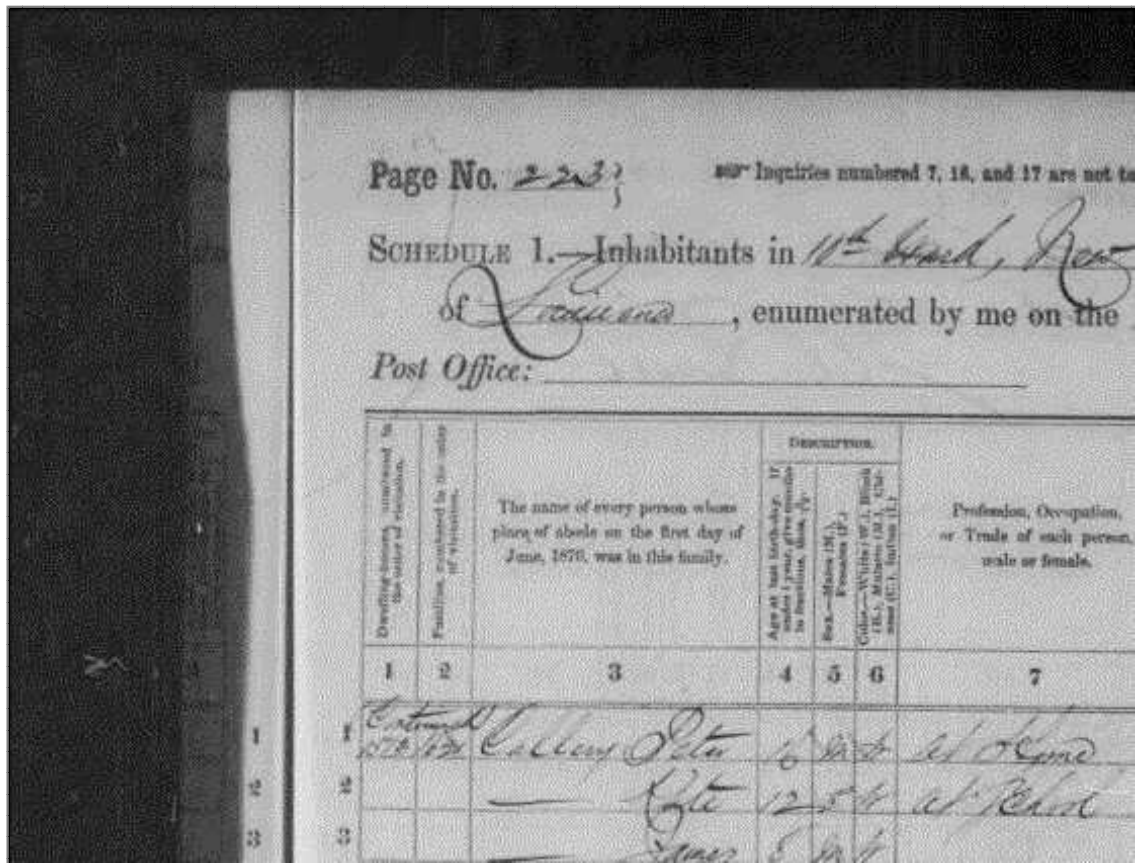 Page No. 223
Inquiries numbered 7, 16, and 17 are not to
SCHEDULE 1.—Inhabitants in 10th Ward, New
of Louisiana, enumerated by me on the
Post Office:
Dwelling-houses, numbered in the order of visitation.
Families, numbered in the order of visitation.
The name of every person whose
place of abode on the first day of
June, 1870, was in this family.
DESCRIPTION.
Age at last birthday. If under 1 year, give months in fractions, thus, 3/12
Sex.—Males (M.), Females (F.)
Color.—White (W.), Black (B.), Mulatto (M.), Chinese (C.), Indian (I.)
Profession, Occupation,
or Trade of each person,
male or female.
1 2 3 4 5 6 7
1 1 Continued Callery Peter 16 M W at Home
2 2 — Kate 12 F W at School
3 3 — James M W